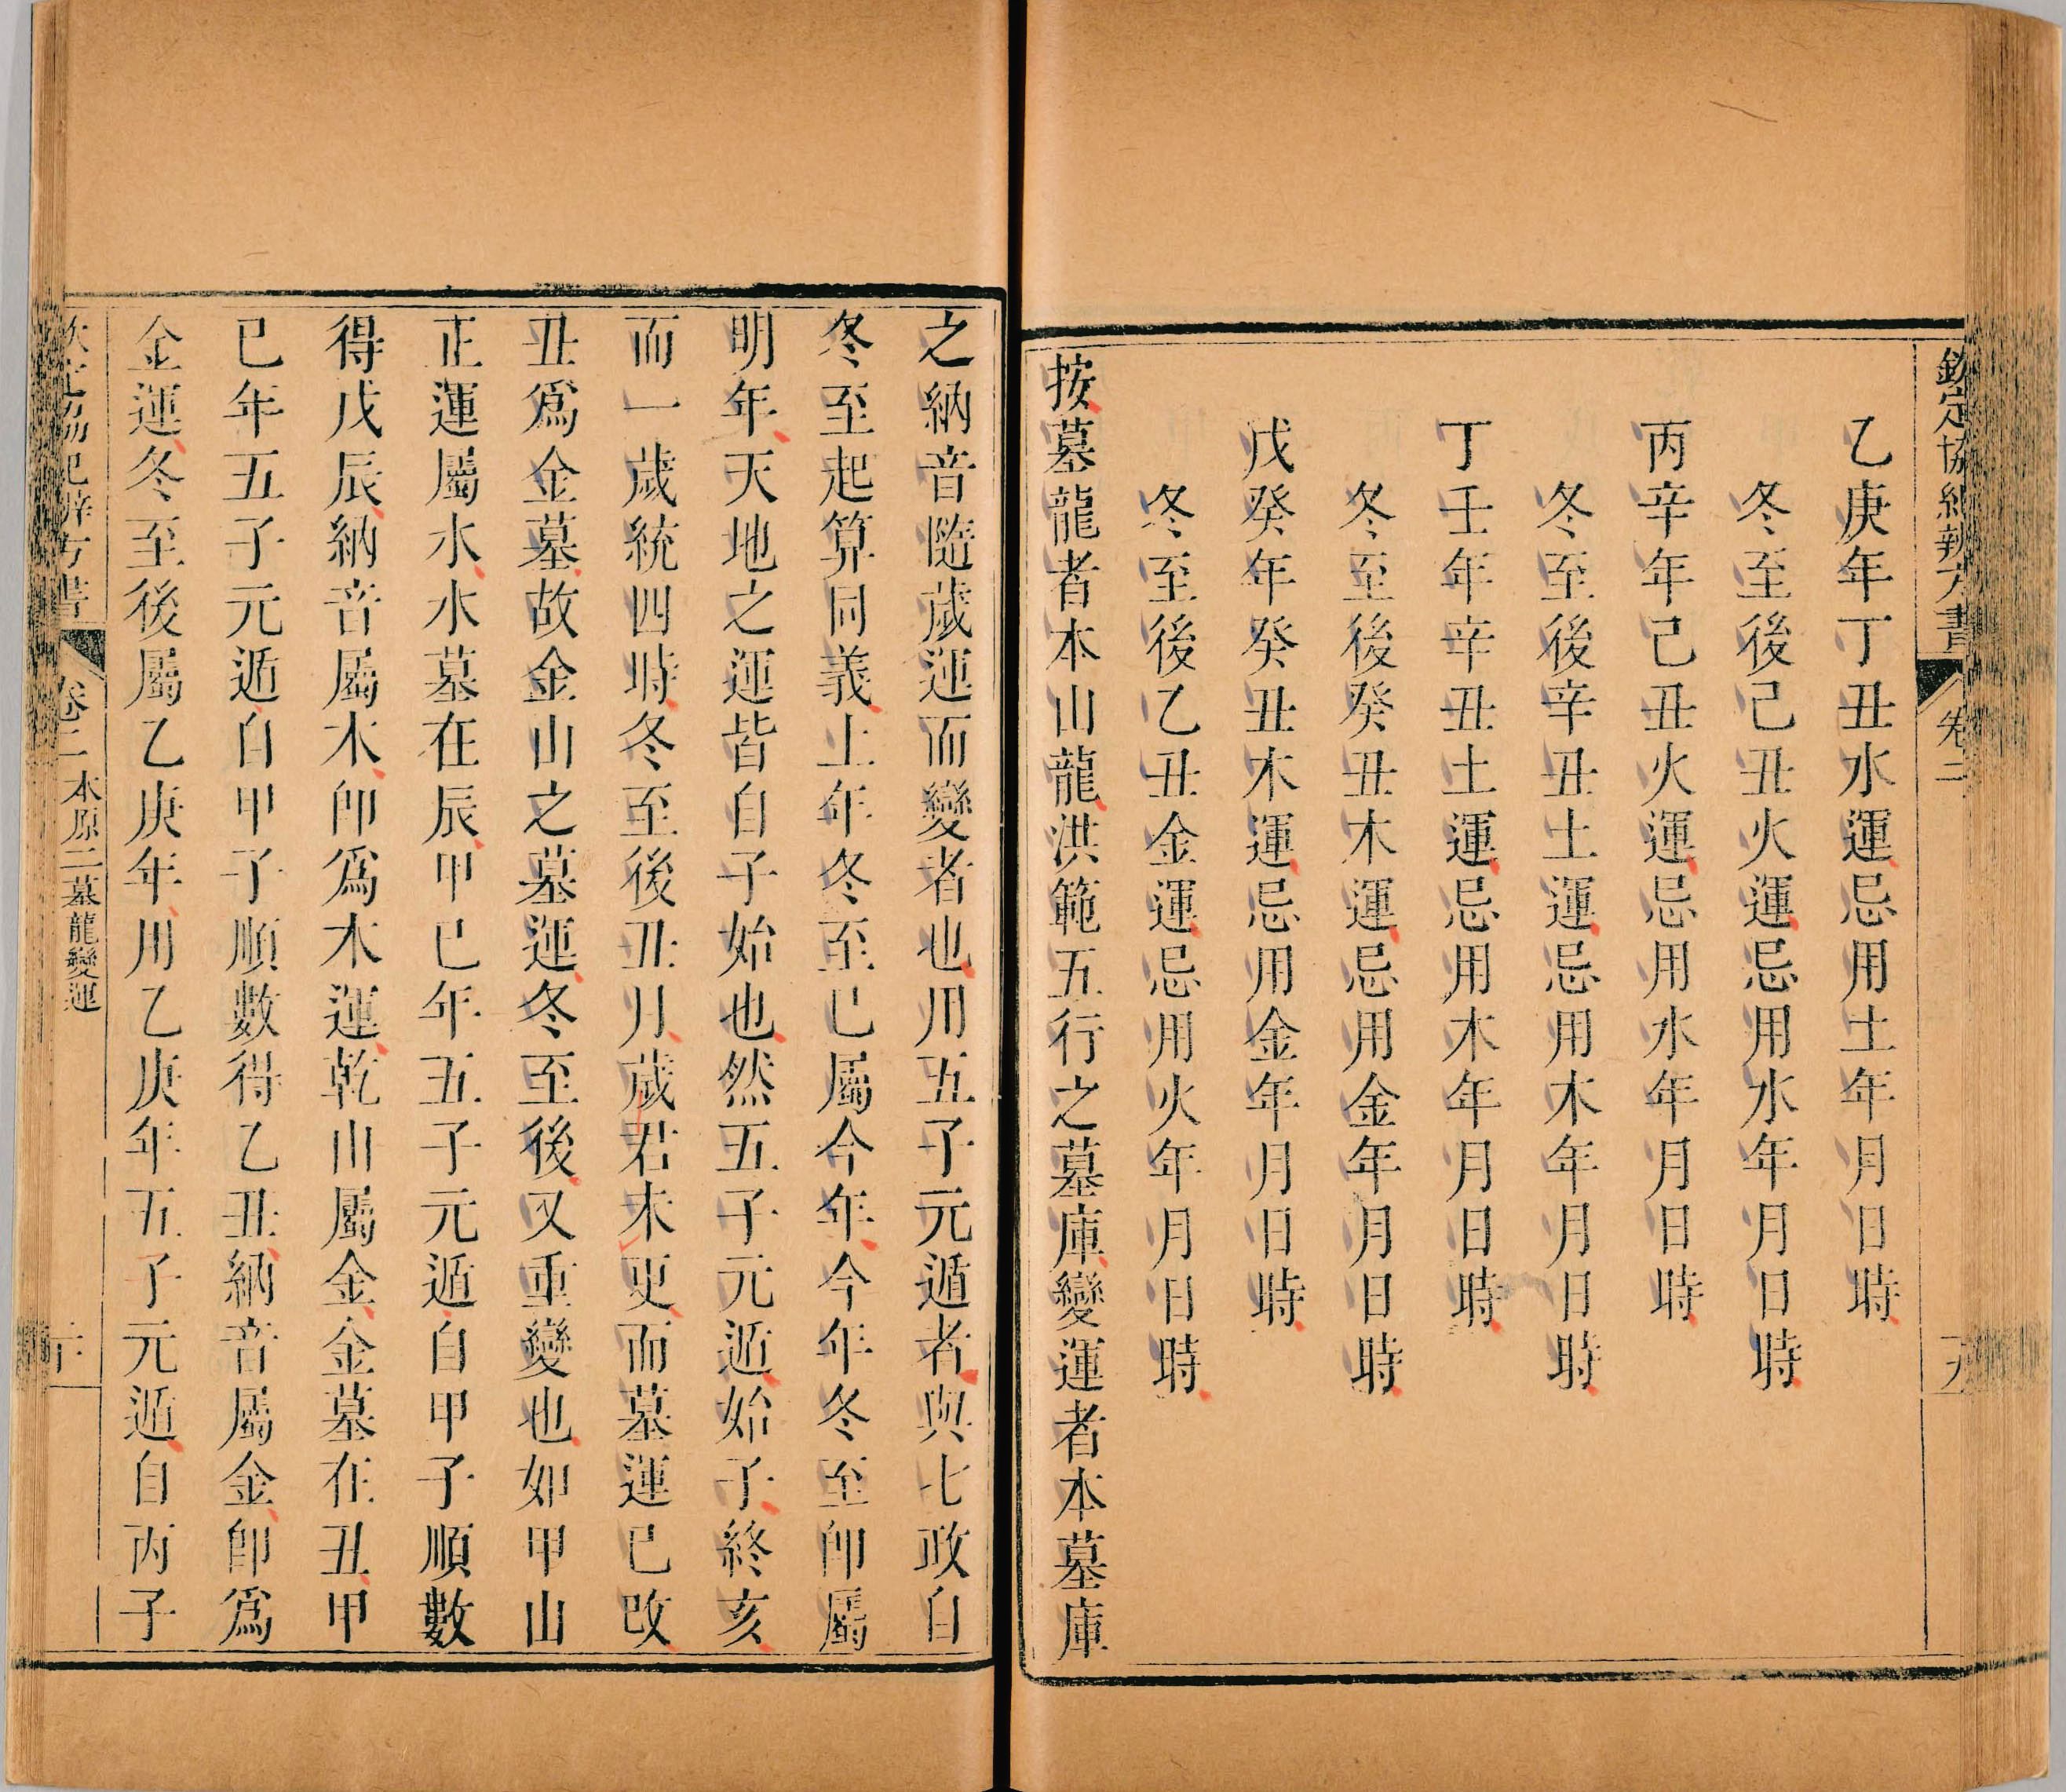 欽定協紀辨方書
卷二
乙庚年丁丑水運忌用土年月日時
冬至後己丑火運忌用水年月日時
丙辛年己丑火運忌用水年月日時
冬至後辛丑土運忌用木年月日時
丁壬年辛丑土運忌用木年月日時
冬至後癸丑木運忌用金年月日時
戊癸年癸丑木運忌用金年月日時
冬至後乙丑金運忌用火年月日時
按墓龍者本山龍洪範五行之墓庫變運者本墓庫
之納音隨歲運而變者也用五子元遁者與七政自
冬至起算同義上年冬至已屬今年今年冬至卽屬
明年天地之運皆自子始也然五子元遁始子終亥
而一歲統四時冬至後丑月歲君未更而墓運已改
丑爲金墓故金山之墓運冬至後又重變也如甲山
正運屬水水墓在辰甲已年五子元遁自甲子順數
得戊辰納音屬木卽爲木運乾山屬金金墓在丑甲
已年五子元遁自甲子順數得乙丑納音屬金卽爲
金運冬至後屬乙庚年用乙庚年五子元遁自丙子
欽定協紀辨方書
卷二 本原二 墓龍變運